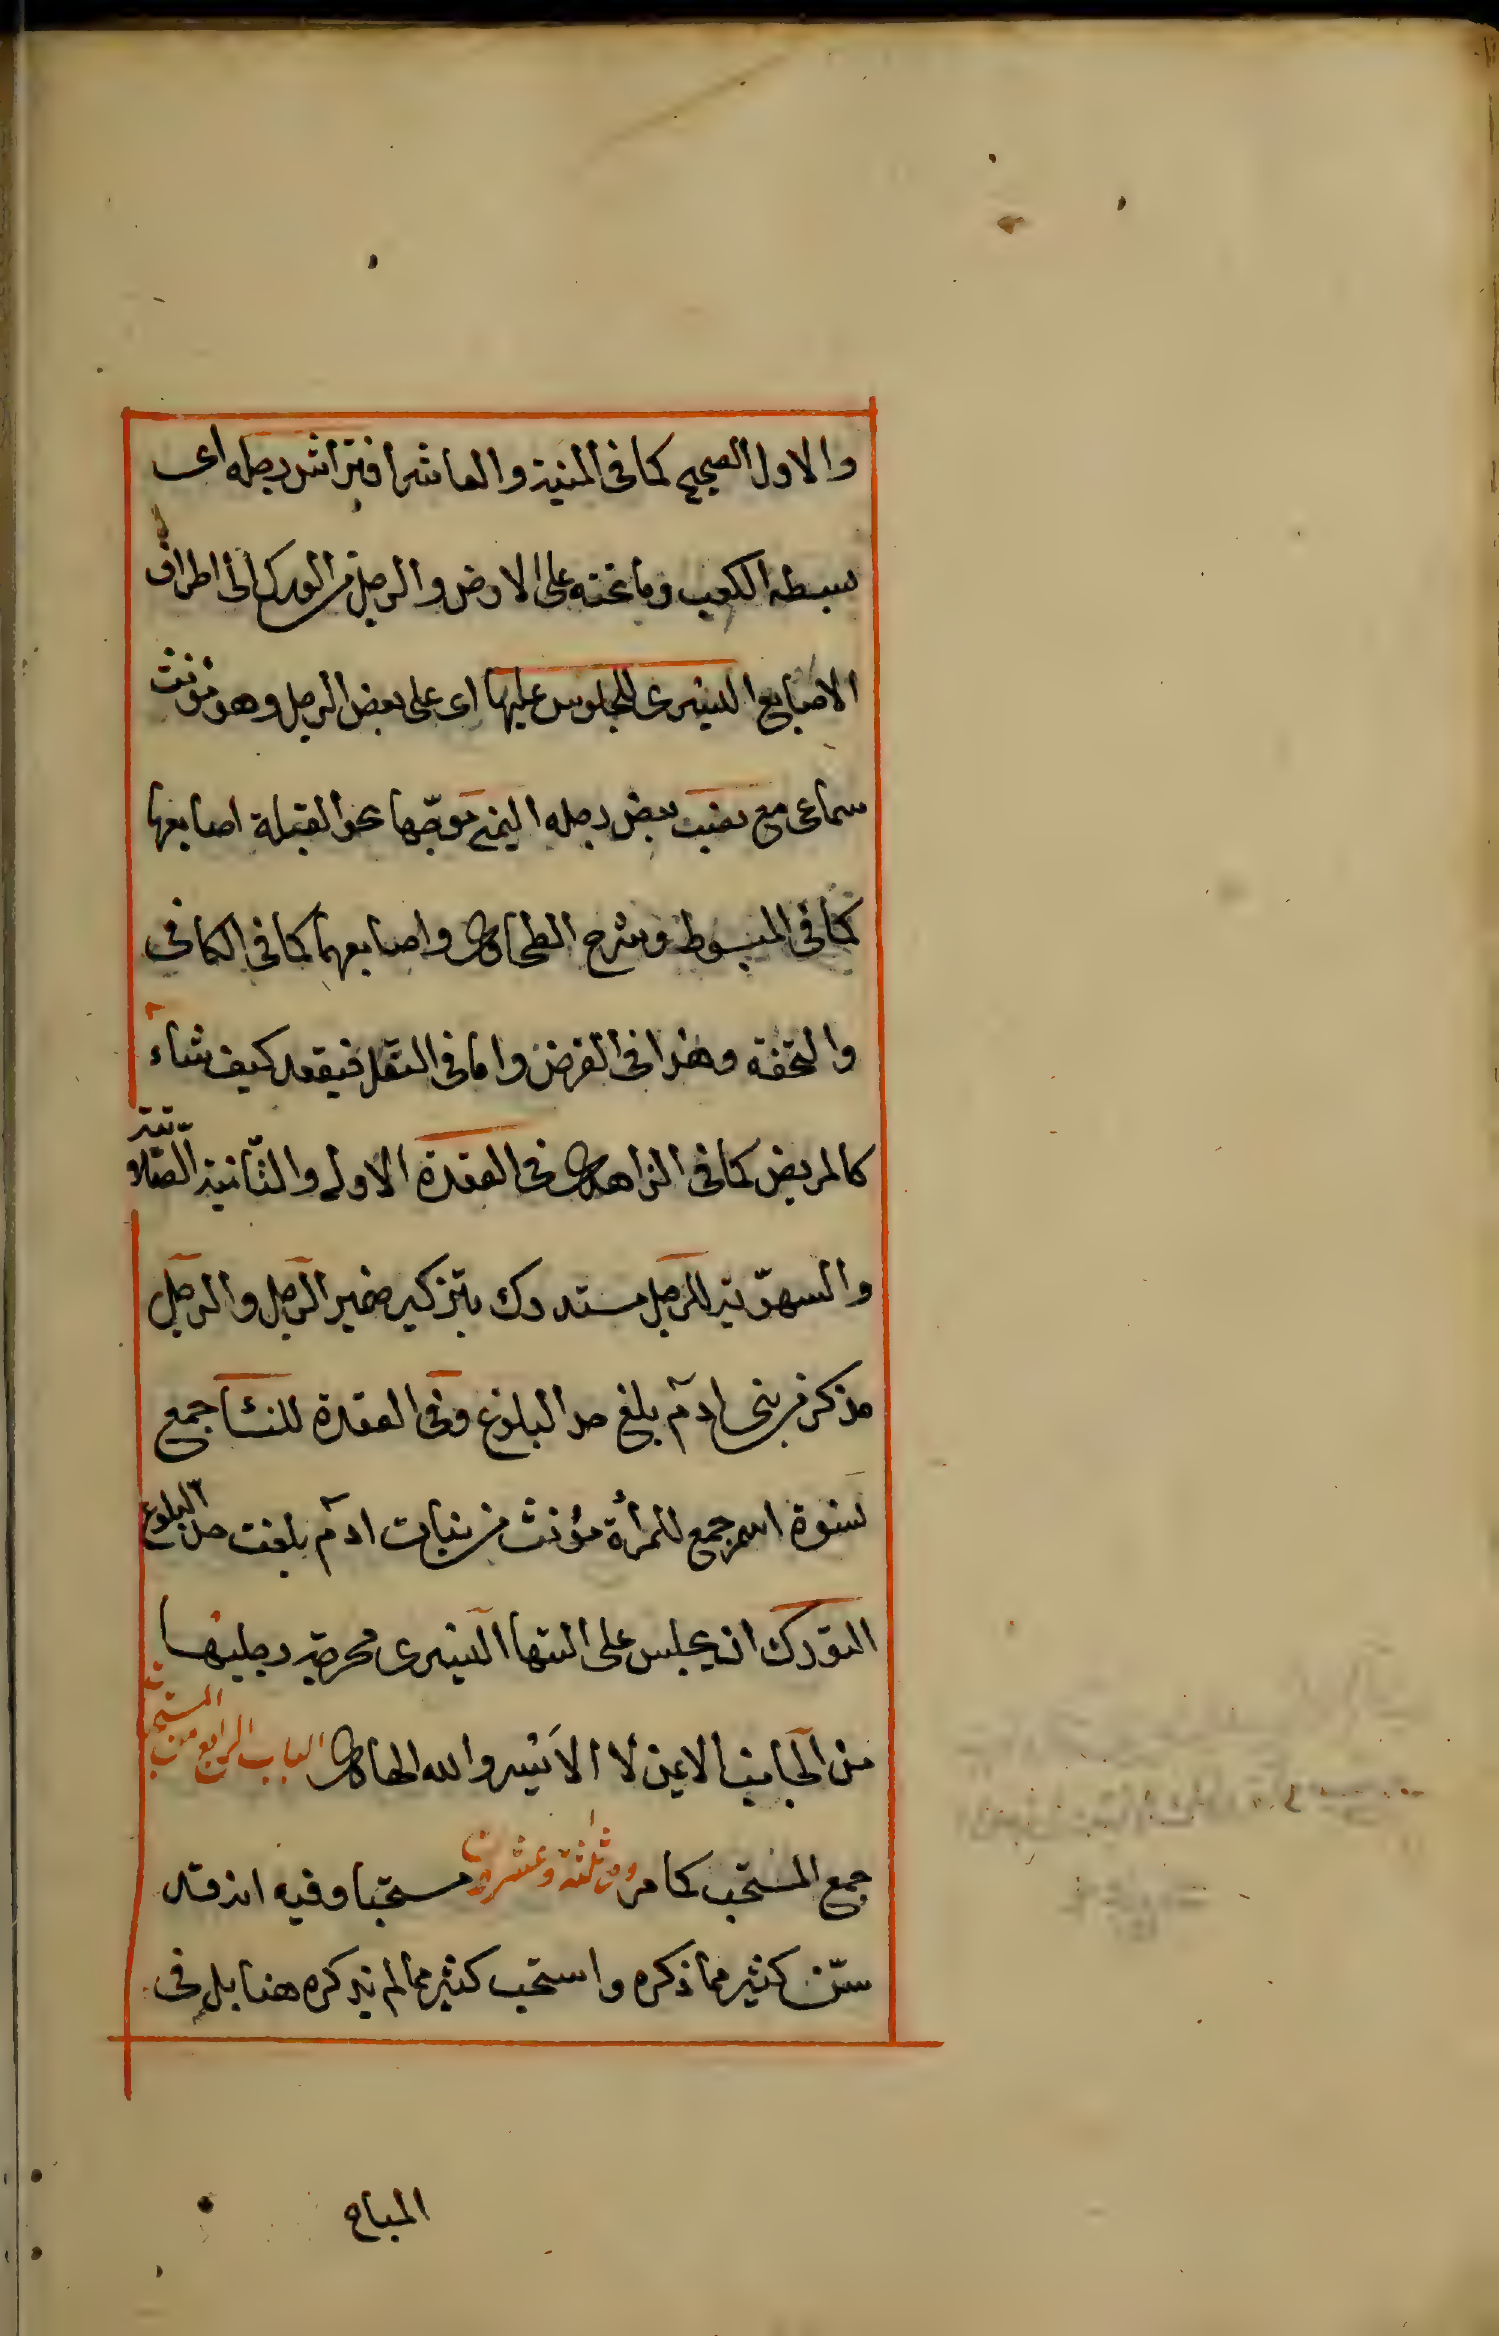 والاول الصحيح كما فى المنية والعاشر افتراش رجله اى
بسطه الكعب وما تحته على الارض والرجل من الورك الى اطراف
الاصابع اليسرى للجلوس عليها اى على بعض الرجل وهو مؤنث
سماعى مع نصب بعض رجله اليمنى موجّها نحو القبلة اصابعها
كما فى المبسوط وشرح الطحاوى واصابعهما كما فى الكافى
والتحفة وهذا فى الفرض واما فى النفل فيقعد كيف شاء
كالمريض كما فى الزاهدى فى القعدة الاولى والثانية الصّلاتية
والسهويّة للرجل مستدرك بتزكير ضمير الرجل والرجل
مذكر من بنى ادم بلغ حد البلوغ وفى القعدة للنسا جمع
نسوة اسم جمع للمرأة مؤنث من بنات ادم بلغت حد البلوغ
التورك ان يجلس على اليتها اليسرى مخرجة رجليها
من الجانب الايمن لا الايسر والله الهادى الباب الرابع من المستحبات
جمع المستحب كما مر وهى ثلثة وعشرون مستحبا وفيه انه قد
سنّ كثير مما ذكره واستحب كثير مما لم يذكره هنا بل فى
المباح